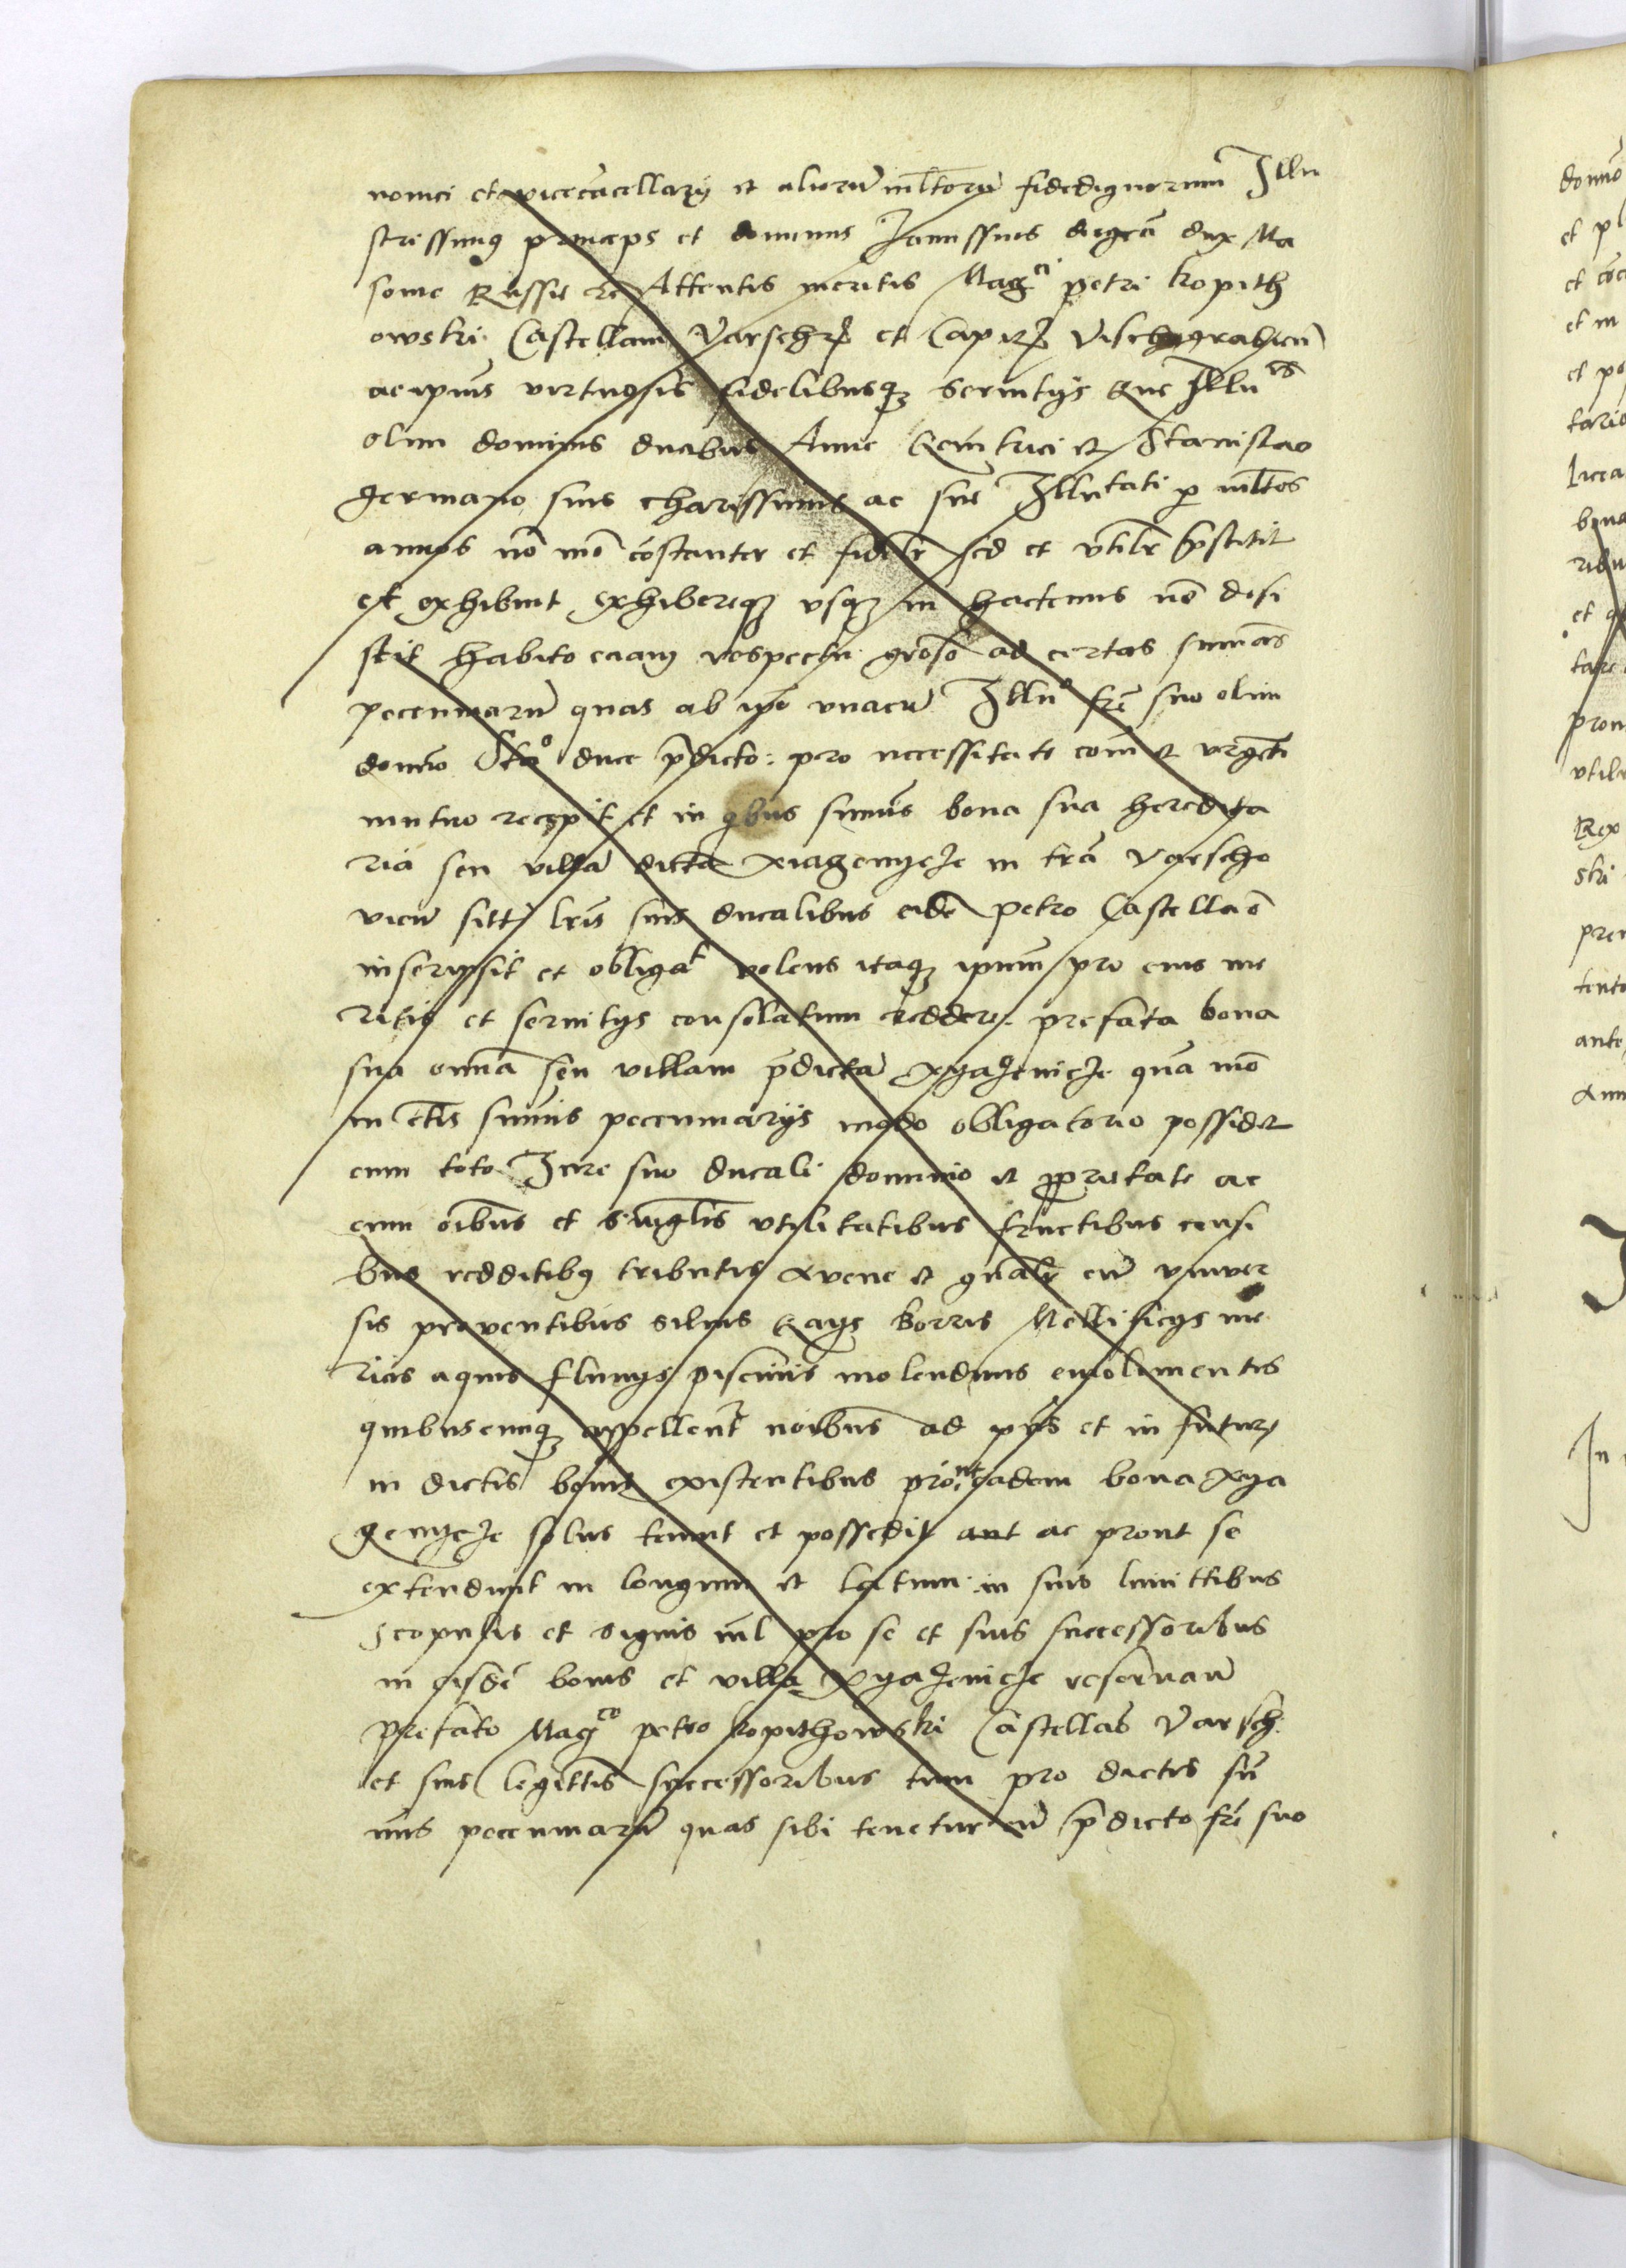 nomici et vicecãcellarij et aliorũ mltorũ fidedignorum Illu
strissimq princeps et dominus Janussius deigrã dux Ma
sovie Russie etc Attentis meritis Mag^ci petri kopith
owski Castellani Varsch et Capit Vischegradien
ac ipius virtuosis fidelibusq servitijs que Illu^es
olim dominis duabus Anne genitrici et Stanislao
germano suis charissimis ac sue Illutati p mltos
annos nõ mõ cõstanter et fidelr sed et vtilr p̃stitit
et exhibuit exhibereq vsq in hactenus nõ desi
stit habito eciam respectu grõso ad certas sum̃as
pecuniarũ quas ab ipo vnacũ Illu^o fr̃e suo olim
domĩo Sta^o duce p̃dicto: pro necessitate com̃ et vrgẽti
mutuo recepit et in qbus sum̃is bona sua heredita
ria seu villã dictã xiagemjcze in trã Varscho
vien sitt lr̃is suis ducalibus eidẽ petro Castellão
inscripsit et obligat volens itaq ipum pro eius me
ritis et servitijs consolatum reddere prefata bona
sua omĩa seu villam p̃dictã xyazenicze quã mõ
in ctis sum̃is pecuniarijs modo obligatorio possidet
cum toto Jure suo ducali dominio et ppriетate ac
cum oĩbus et singlis vtilitatibus fructibus censi
bus redditibq tributis Avene et gñalr cũ vniver
sis proventibus silvis gays borris Mellificijs me
ricis aquis fluvijs piscinis molendinis emolimentis
quibuscumq appellent noĩbus ad pñs et in futur
in dictis bonis existentibus pro^ut eadem bona xya
zemjcze solus tenuit et possedit aut ac prout se
extendunt in longum et latum in suis limittibus
scopulis et signis nil pro se et suis successoribus
in eisdẽ bonis et villa xyazenicze reservan
prefato Mag^co petro kopithowski Castellão Varsch
et suis legittis successoribus tum pro dictis sũ
mis pecuniarũ quas sibi tenetur cũ p̃dicto fr̃e suo